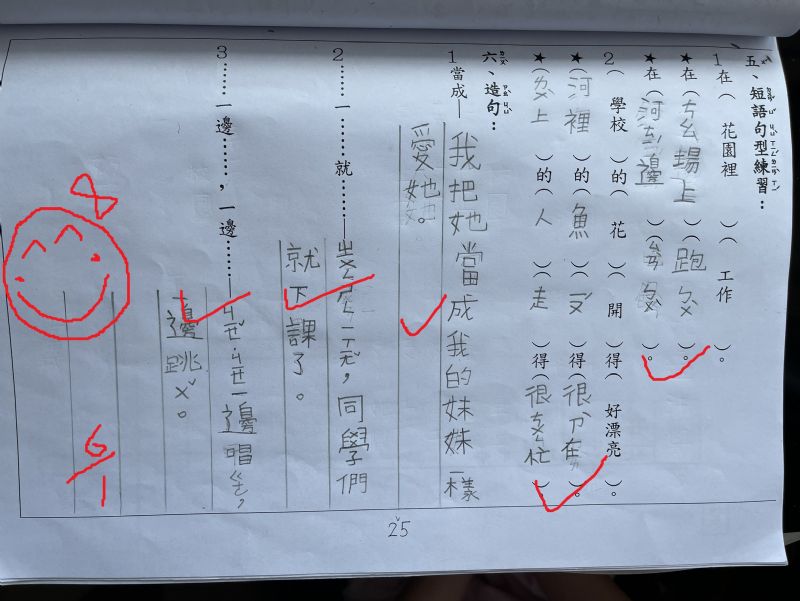 五、短語句型練習：
1 在（花園裡）（工作）。
★在（ㄘㄠ場上）（跑ㄅㄨˋ）。
★在（河ㄅㄧㄢ邊）（ㄙㄢˋㄅㄨˋ）。
2（學校）的（花）（開）得（好漂亮）。
★（河裡）的（魚）（ㄧㄡˊ）得（很ㄗˋ在）。
★（ㄌㄨˋ上）的（人）（走）得（很ㄘㄨㄥ忙）。
六、造句：
1 當成—
我把她當成我的妹妹一樣
愛她。
2……一……就……—
ㄓㄨㄥ ㄕㄥ一ㄒㄧㄤˇ，同學們
就下課了。
3……一邊……，一邊……—
ㄐㄧㄝˇㄐㄧㄝ一邊唱ㄍㄜ，
一邊跳ㄨˇ。
6/1
25